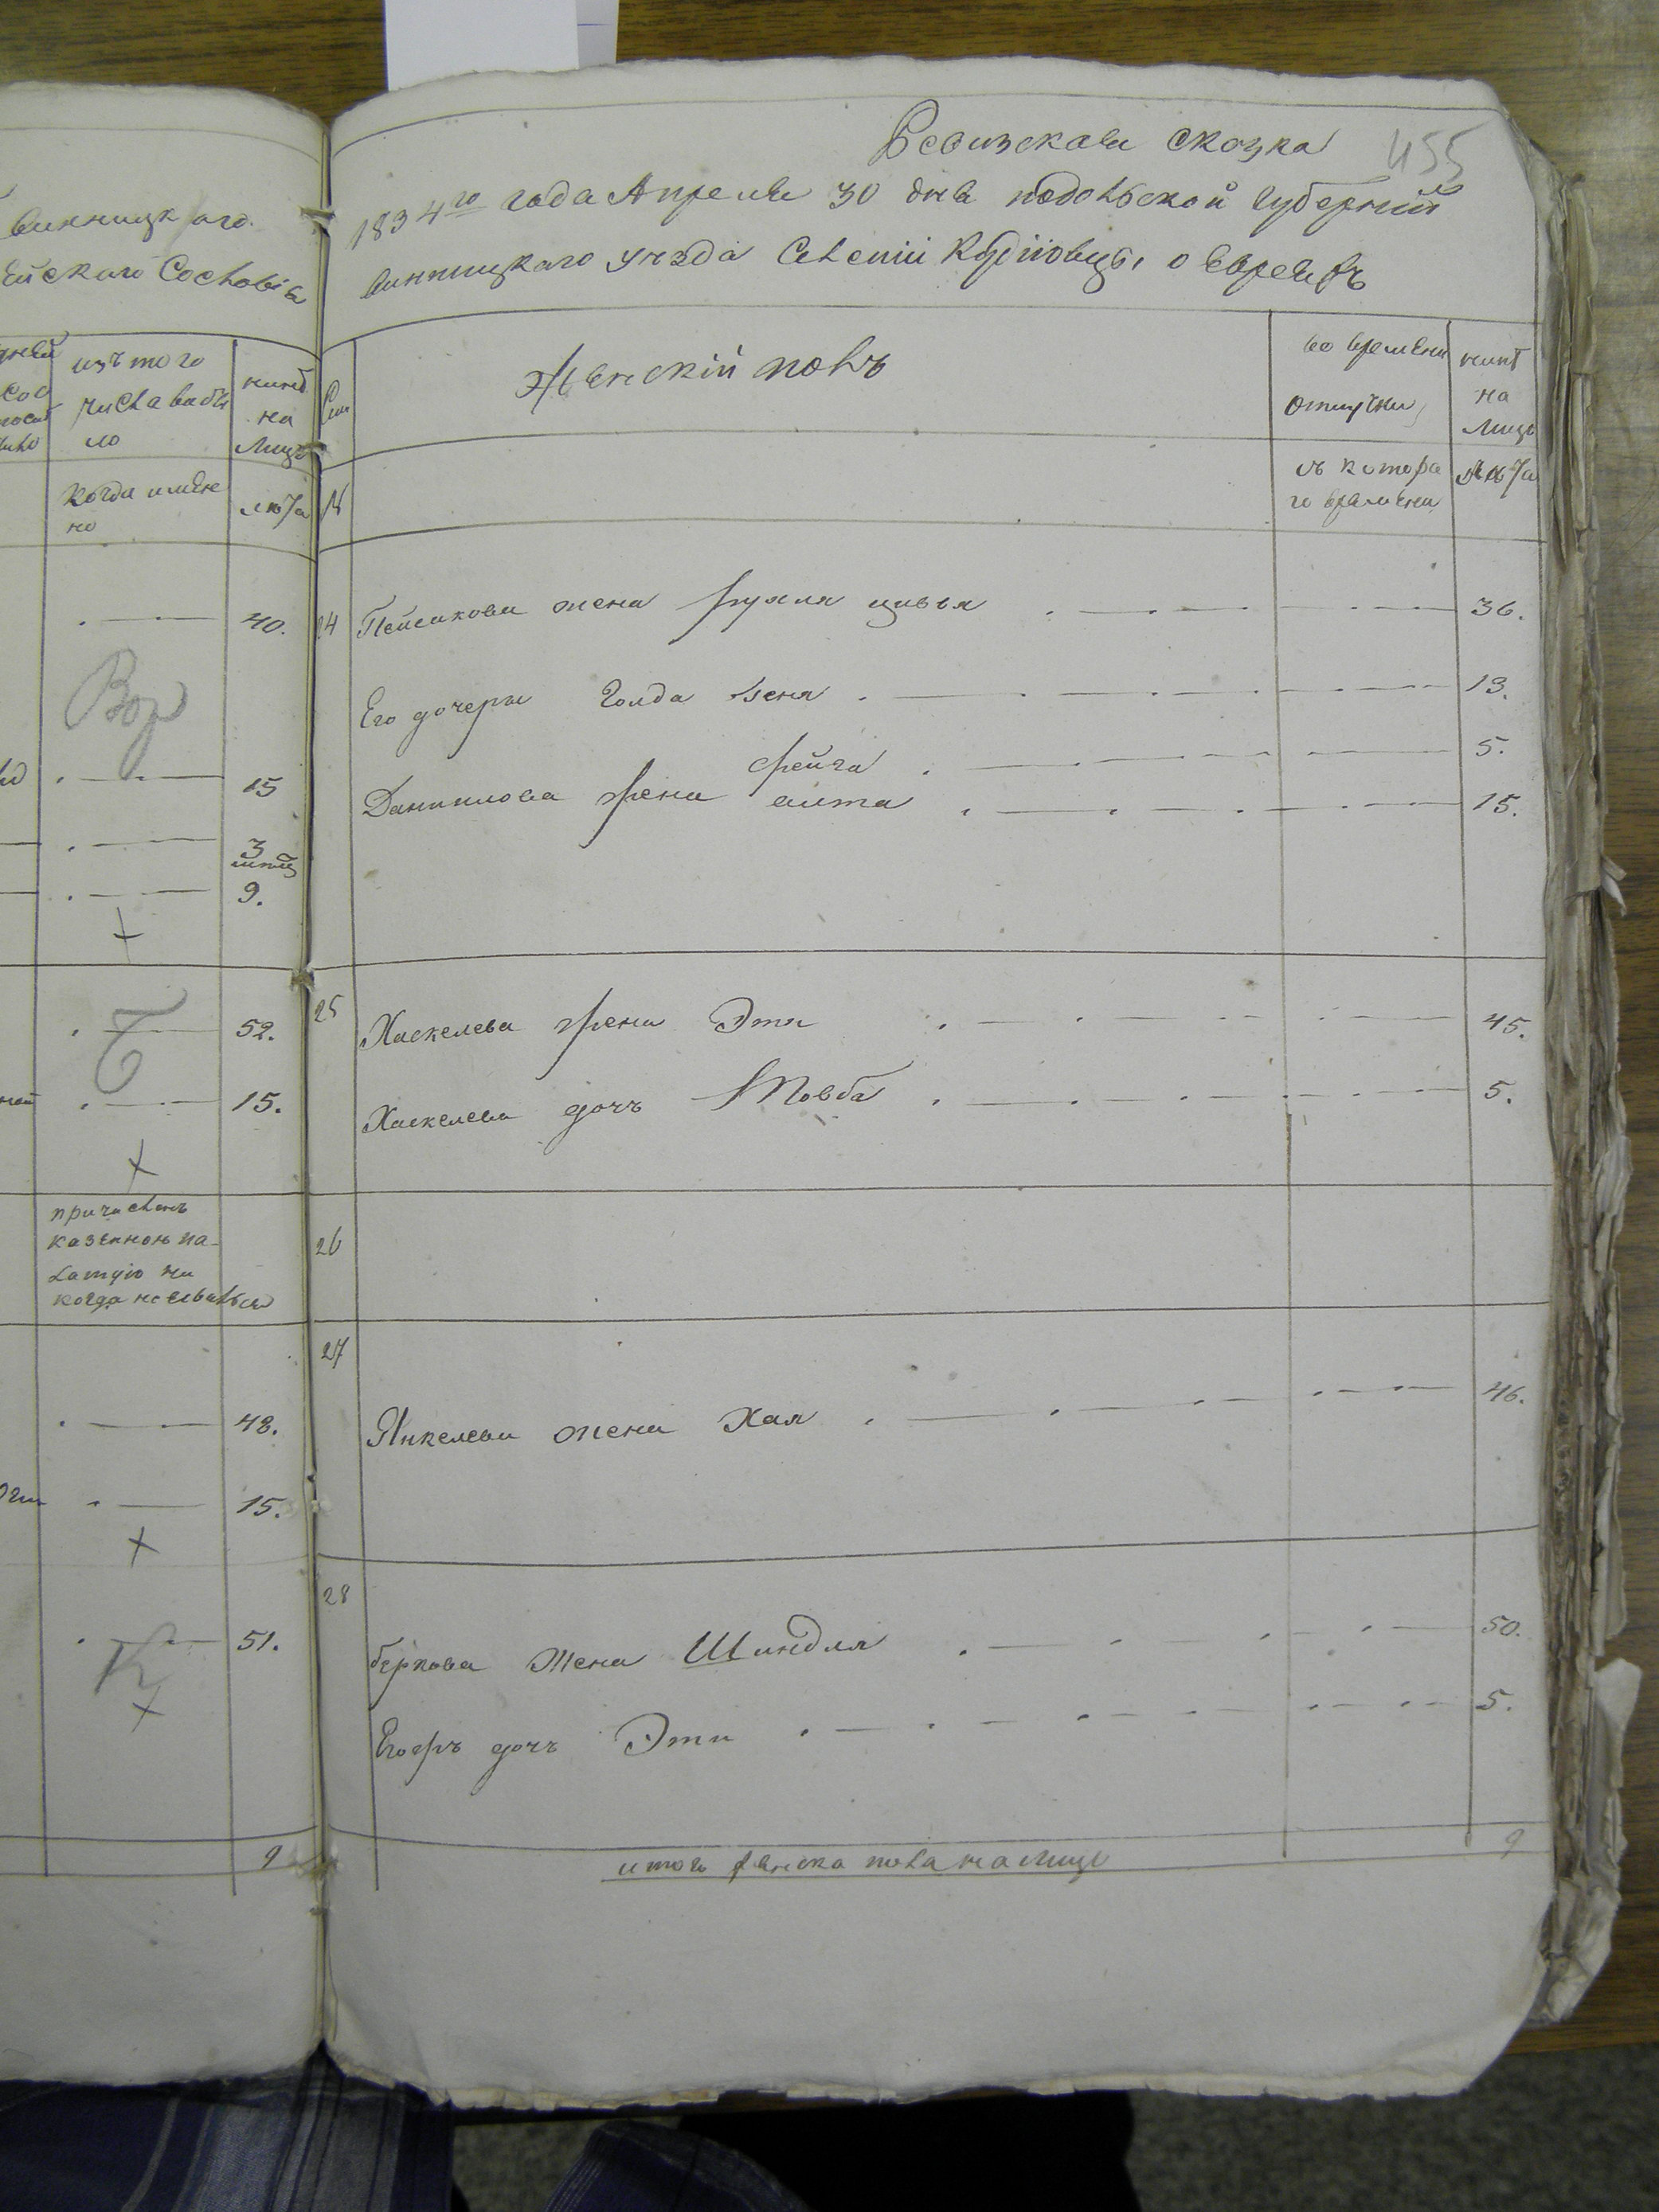 Винницкаго
ейскаго Сословія
изъ того
числа выбы
ло
нынѣ
на
Лицо
когда имен
но
лѣта
40.
Вор
15
3
9.
52.
15.
причислен
казенною па-
латую ни
когда не явился
48.
15.
51.
К
9
Ревизская сказка
455
1834го года Апреля 30 дня подольской губернии
винницкаго уезда Селении Курыловцы о Евреяхъ
Женскій полъ
во времени
отлучки
нынѣ
на
Лицо
№
съ котора
го времени
лѣта
24 Пейсахова жена Фрума цивья 36.
Его дочери Голда Ксеня 13.
Фейга 5.
Данилова жена алта 15.
25 Хаскелева жена Этя 45.
Хаскелева дочь Товба 5.
26
27
Янкелева жена Хая 46.
28
беркова жена Шиндля 50.
Егожъ дочь Эти 5.
итого женска пола на лицо 9